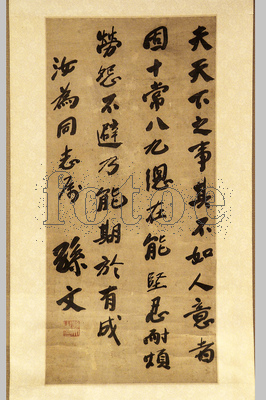 夫天下之事其不如人意者
固十常八九總在能堅忍耐煩
勞怨不避乃能期於有成
汝為同志屬
孫文
fotoe